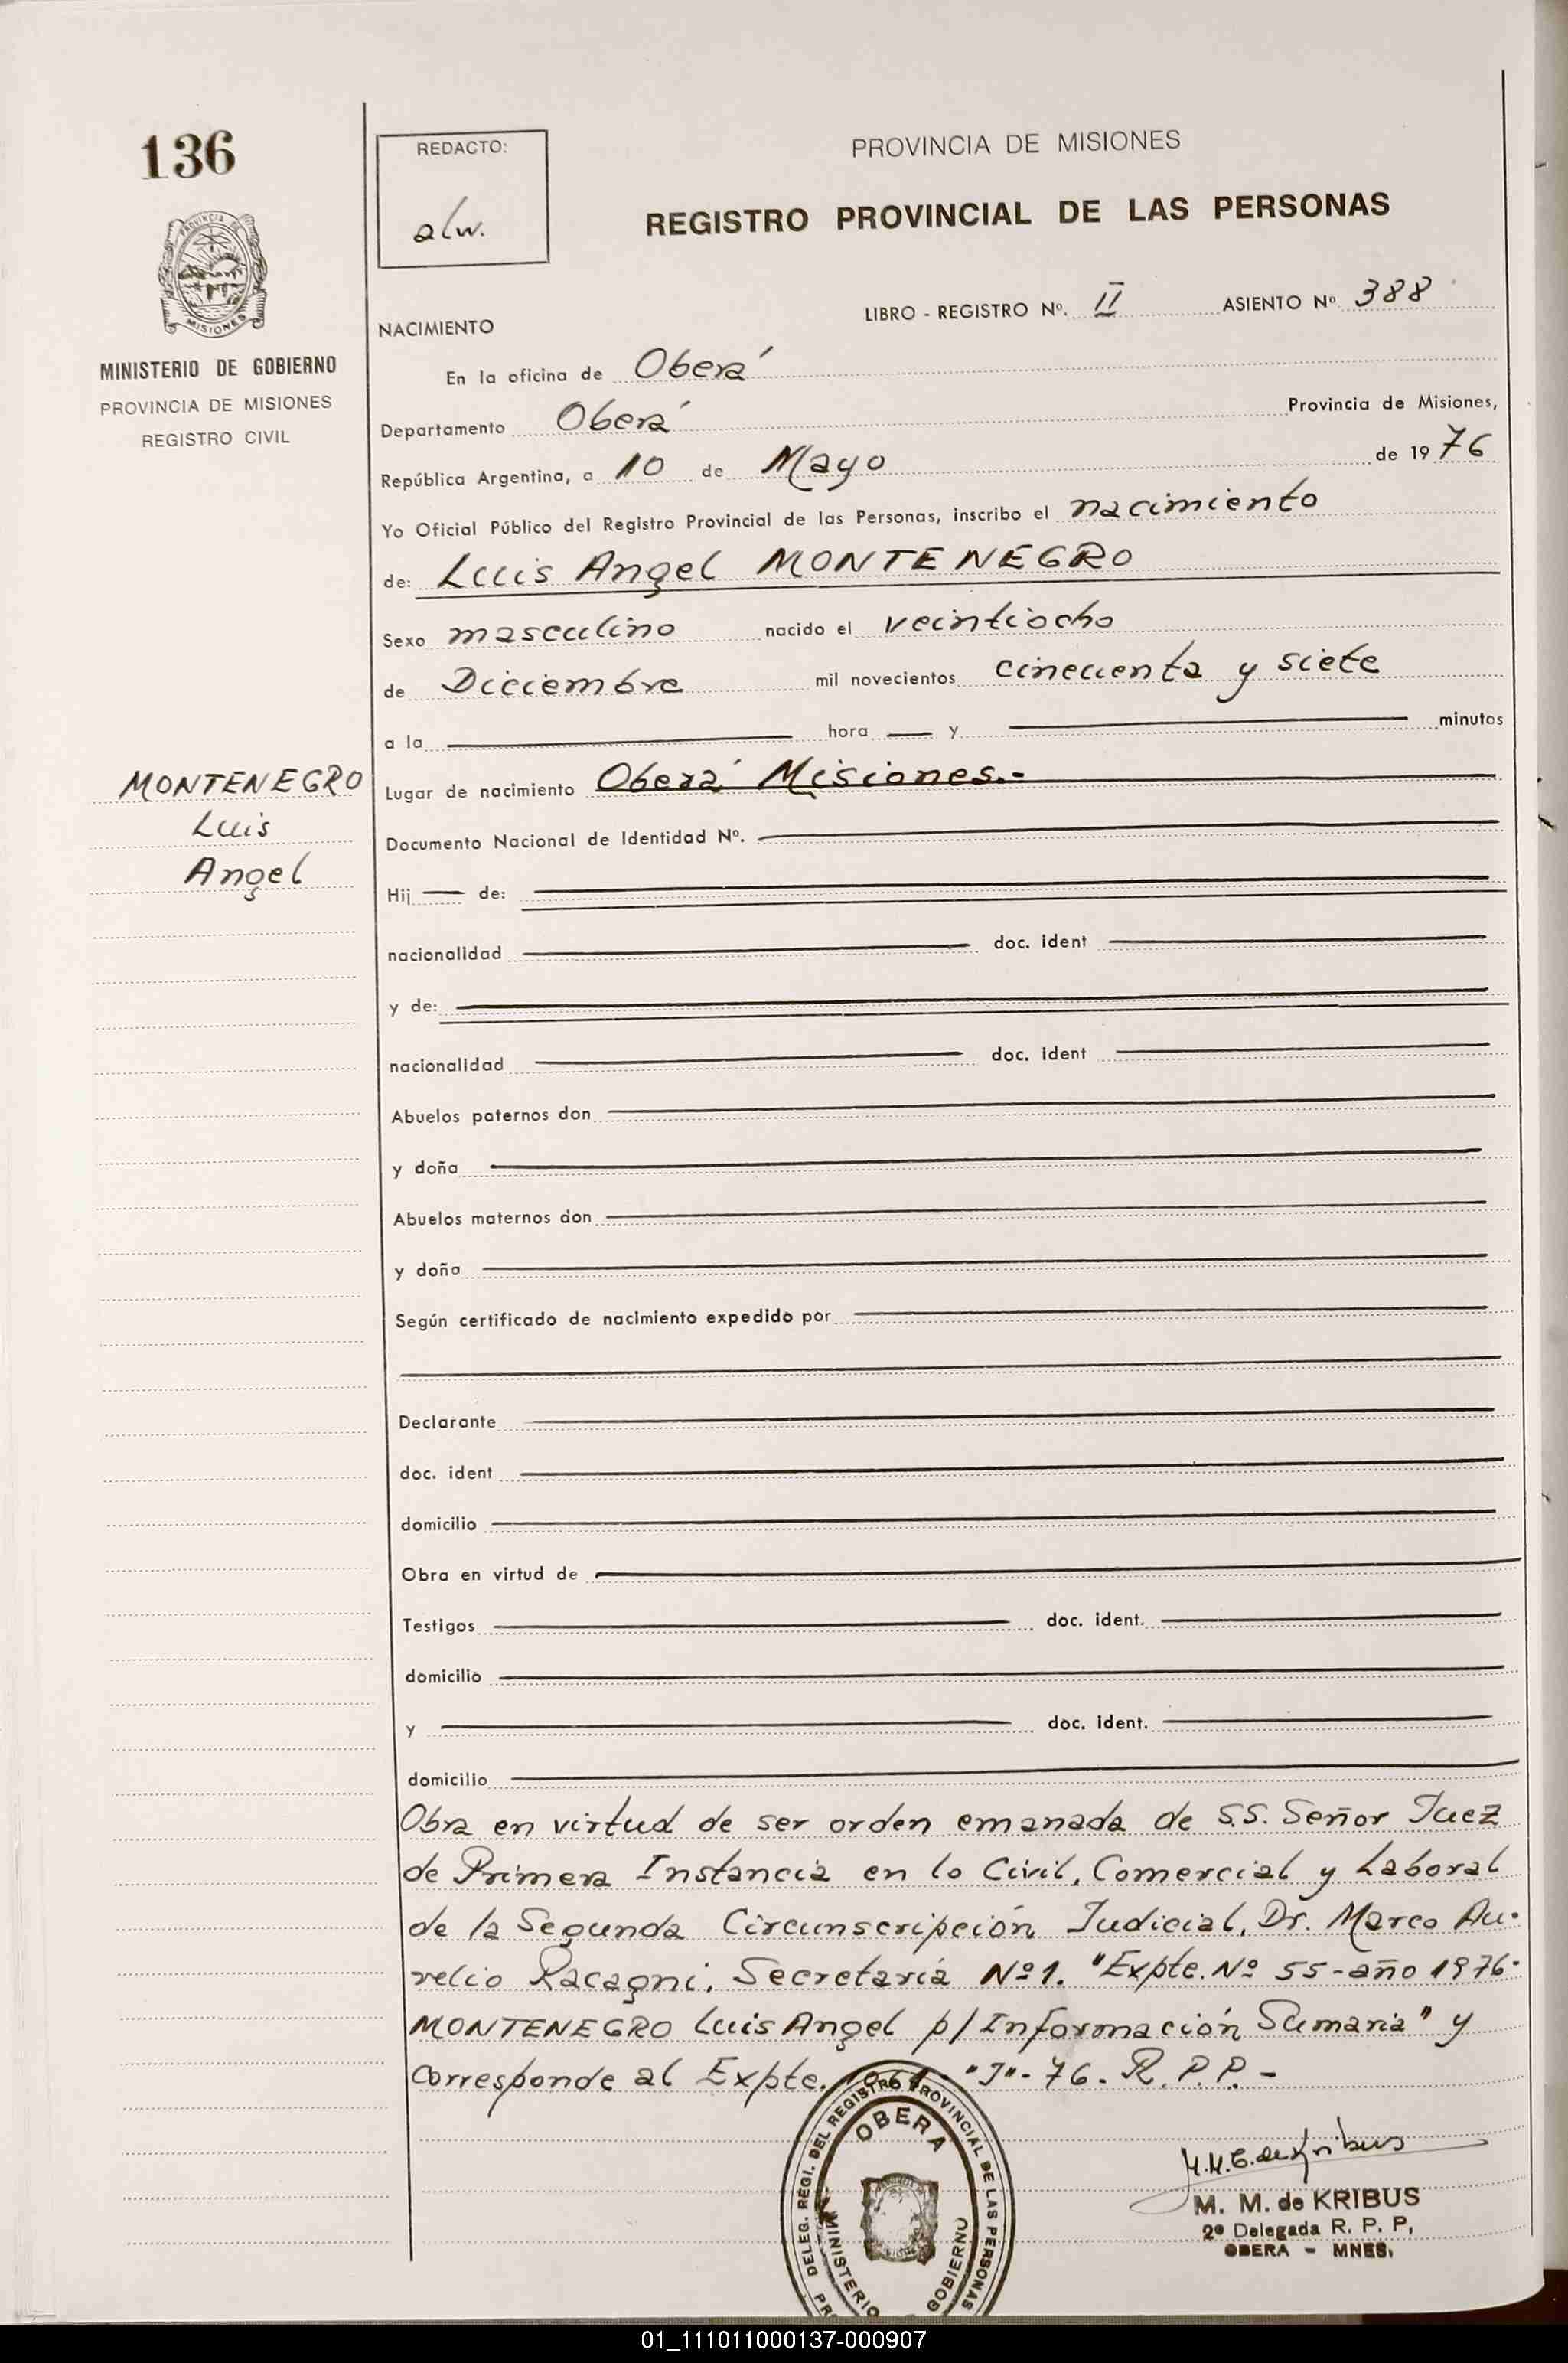 136
PROVINCIA
MISIONES
MINISTERIO DE GOBIERNO
PROVINCIA DE MISIONES
REGISTRO CIVIL
REDACTO:
alw.
PROVINCIA DE MISIONES
REGISTRO PROVINCIAL DE LAS PERSONAS
LIBRO - REGISTRO Nº. II ASIENTO Nº 388
NACIMIENTO
En la oficina de Oberá
Departamento Oberá Provincia de Misiones,
República Argentina, a 10 de Mayo de 1976
Yo Oficial Público del Registro Provincial de las Personas, inscribo el nacimiento
de: Luis Angel MONTENEGRO
Sexo masculino nacido el veintiocho
de Diciembre mil novecientos cincuenta y siete
a la hora y minutos
MONTENEGRO
Luis
Angel
Lugar de nacimiento Oberá Misiones.-
Documento Nacional de Identidad Nº.
Hij de:
nacionalidad doc. ident
y de:
nacionalidad doc. ident
Abuelos paternos don
y doña
Abuelos maternos don
y doña
Según certificado de nacimiento expedido por
Declarante
doc. ident
domicilio
Obra en virtud de
Testigos doc. ident.
domicilio
y doc. ident.
domicilio
Obra en virtud de ser orden emanada de S.S. Señor Juez
de Primera Instancia en lo Civil, Comercial y Laboral
de la Segunda Circunscripción Judicial, Dr. Marco Au-
relio Racagni, Secretaría Nº1. "Expte. Nº 55-año 1976-
MONTENEGRO Luis Angel p/Información Sumaria" y
Corresponde al Expte. "J"-76. R.P.P.-
DELEG. REGI. DEL REGISTRO PROVINCIAL DE LAS PERSONAS
OBERA
MINISTERIO GOBIERNO
M.M.E. de Kribus
M. M. de KRIBUS
2ª Delegada R. P. P.
OBERA - MNES.
01_111011000137-000907